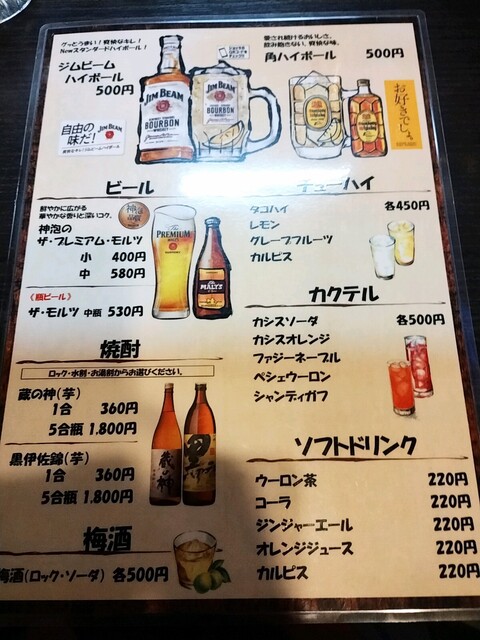 グッとうまい！爽快なキレ！
Newスタンダードハイボール！
ジムビーム
ハイボール
500円
自由の
味だ！
JIM BEAM
JIM BEAM
BOURBON
WHISKEY
JIM BEAM
BOURBON
愛され続けるおいしさ。
飲み飽きない、爽快な味。
角ハイボール 500円
お好きでしょ。
ビール
鮮やかに広がる
華やかな香りと深いコク。
神泡
神泡の
ザ・プレミアム・モルツ
小 400円
中 580円
《瓶ビール》
ザ・モルツ 中瓶 530円
PREMIUM
MALT'S
焼酎
ロック・水割・お湯割からお選びください。
蔵の神(芋)
1合 360円
5合瓶 1,800円
黒伊佐錦(芋)
1合 360円
5合瓶 1,800円
蔵の神
黒
梅酒
梅酒(ロック・ソーダ) 各500円
チューハイ
タコハイ 各450円
レモン
グレープフルーツ
カルピス
カクテル
カシスソーダ 各500円
カシスオレンジ
ファジーネーブル
ペシェウーロン
シャンディガフ
ソフトドリンク
ウーロン茶 220円
コーラ 220円
ジンジャーエール 220円
オレンジジュース 220円
カルピス 220円